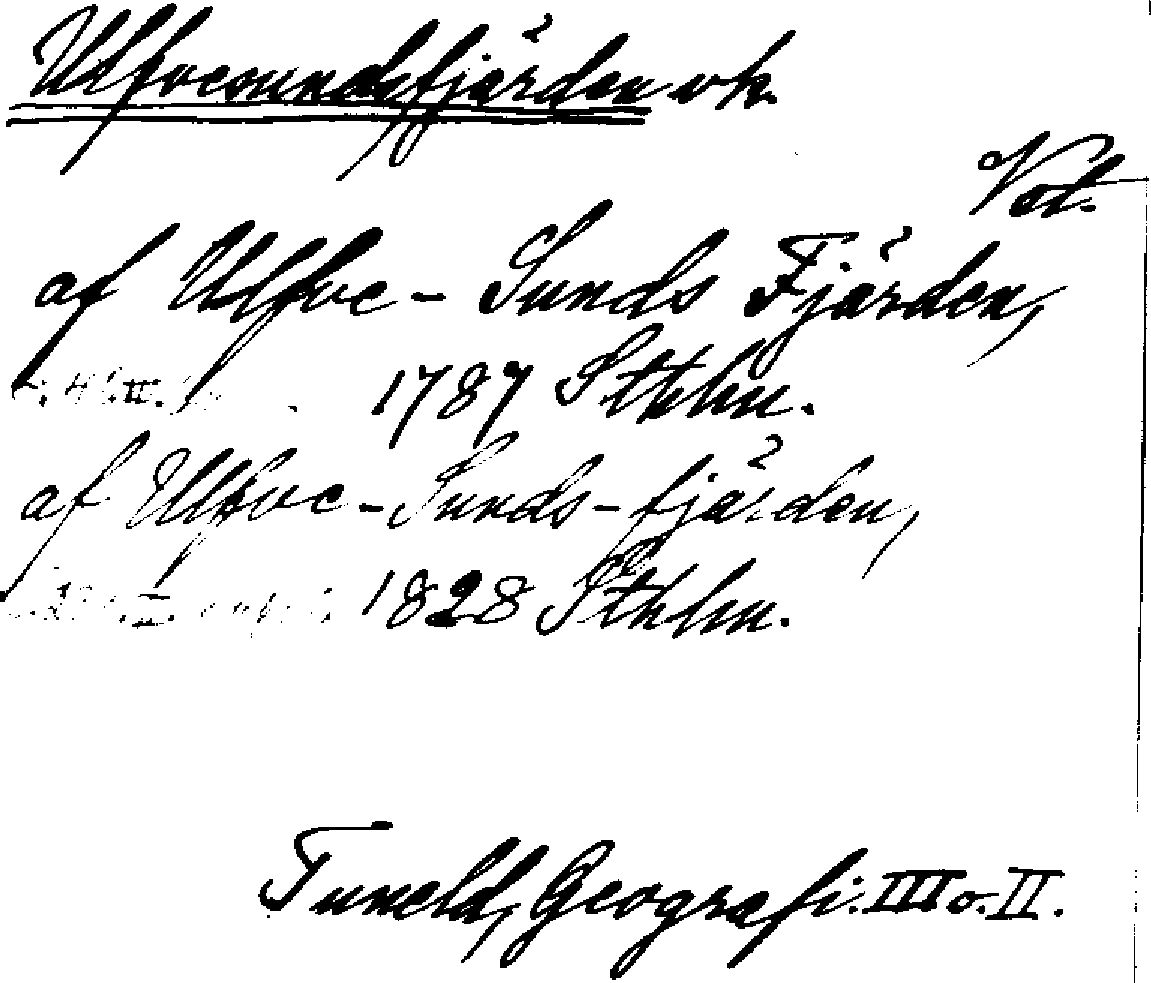 Ulfvesundsfjärden vk.
Vet.
af Ulfve-Sunds Fjärden,
1787 Sthlm.
af Ulfve-Sunds-fjärden,
1828 Sthlm.
Tuneld, Geografi. III o. II.